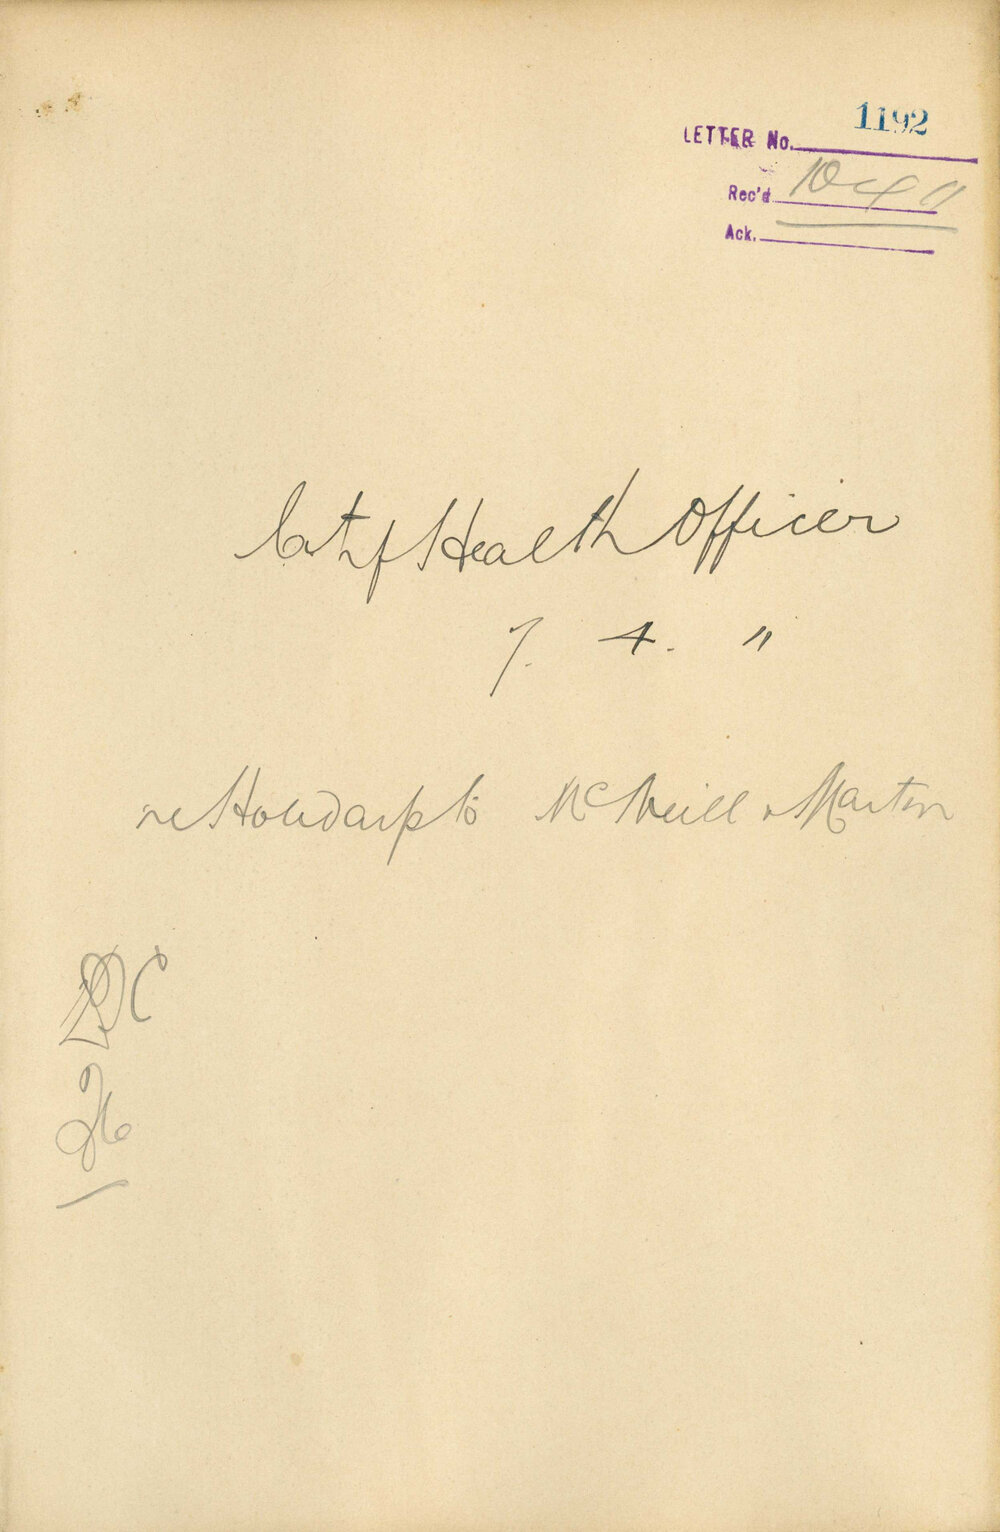 LETTER No. 1192
Rec'd 10 4 11
Ack.
City Health Officer
7. 4. 11
re Holidays to McNeill & Martin
DC